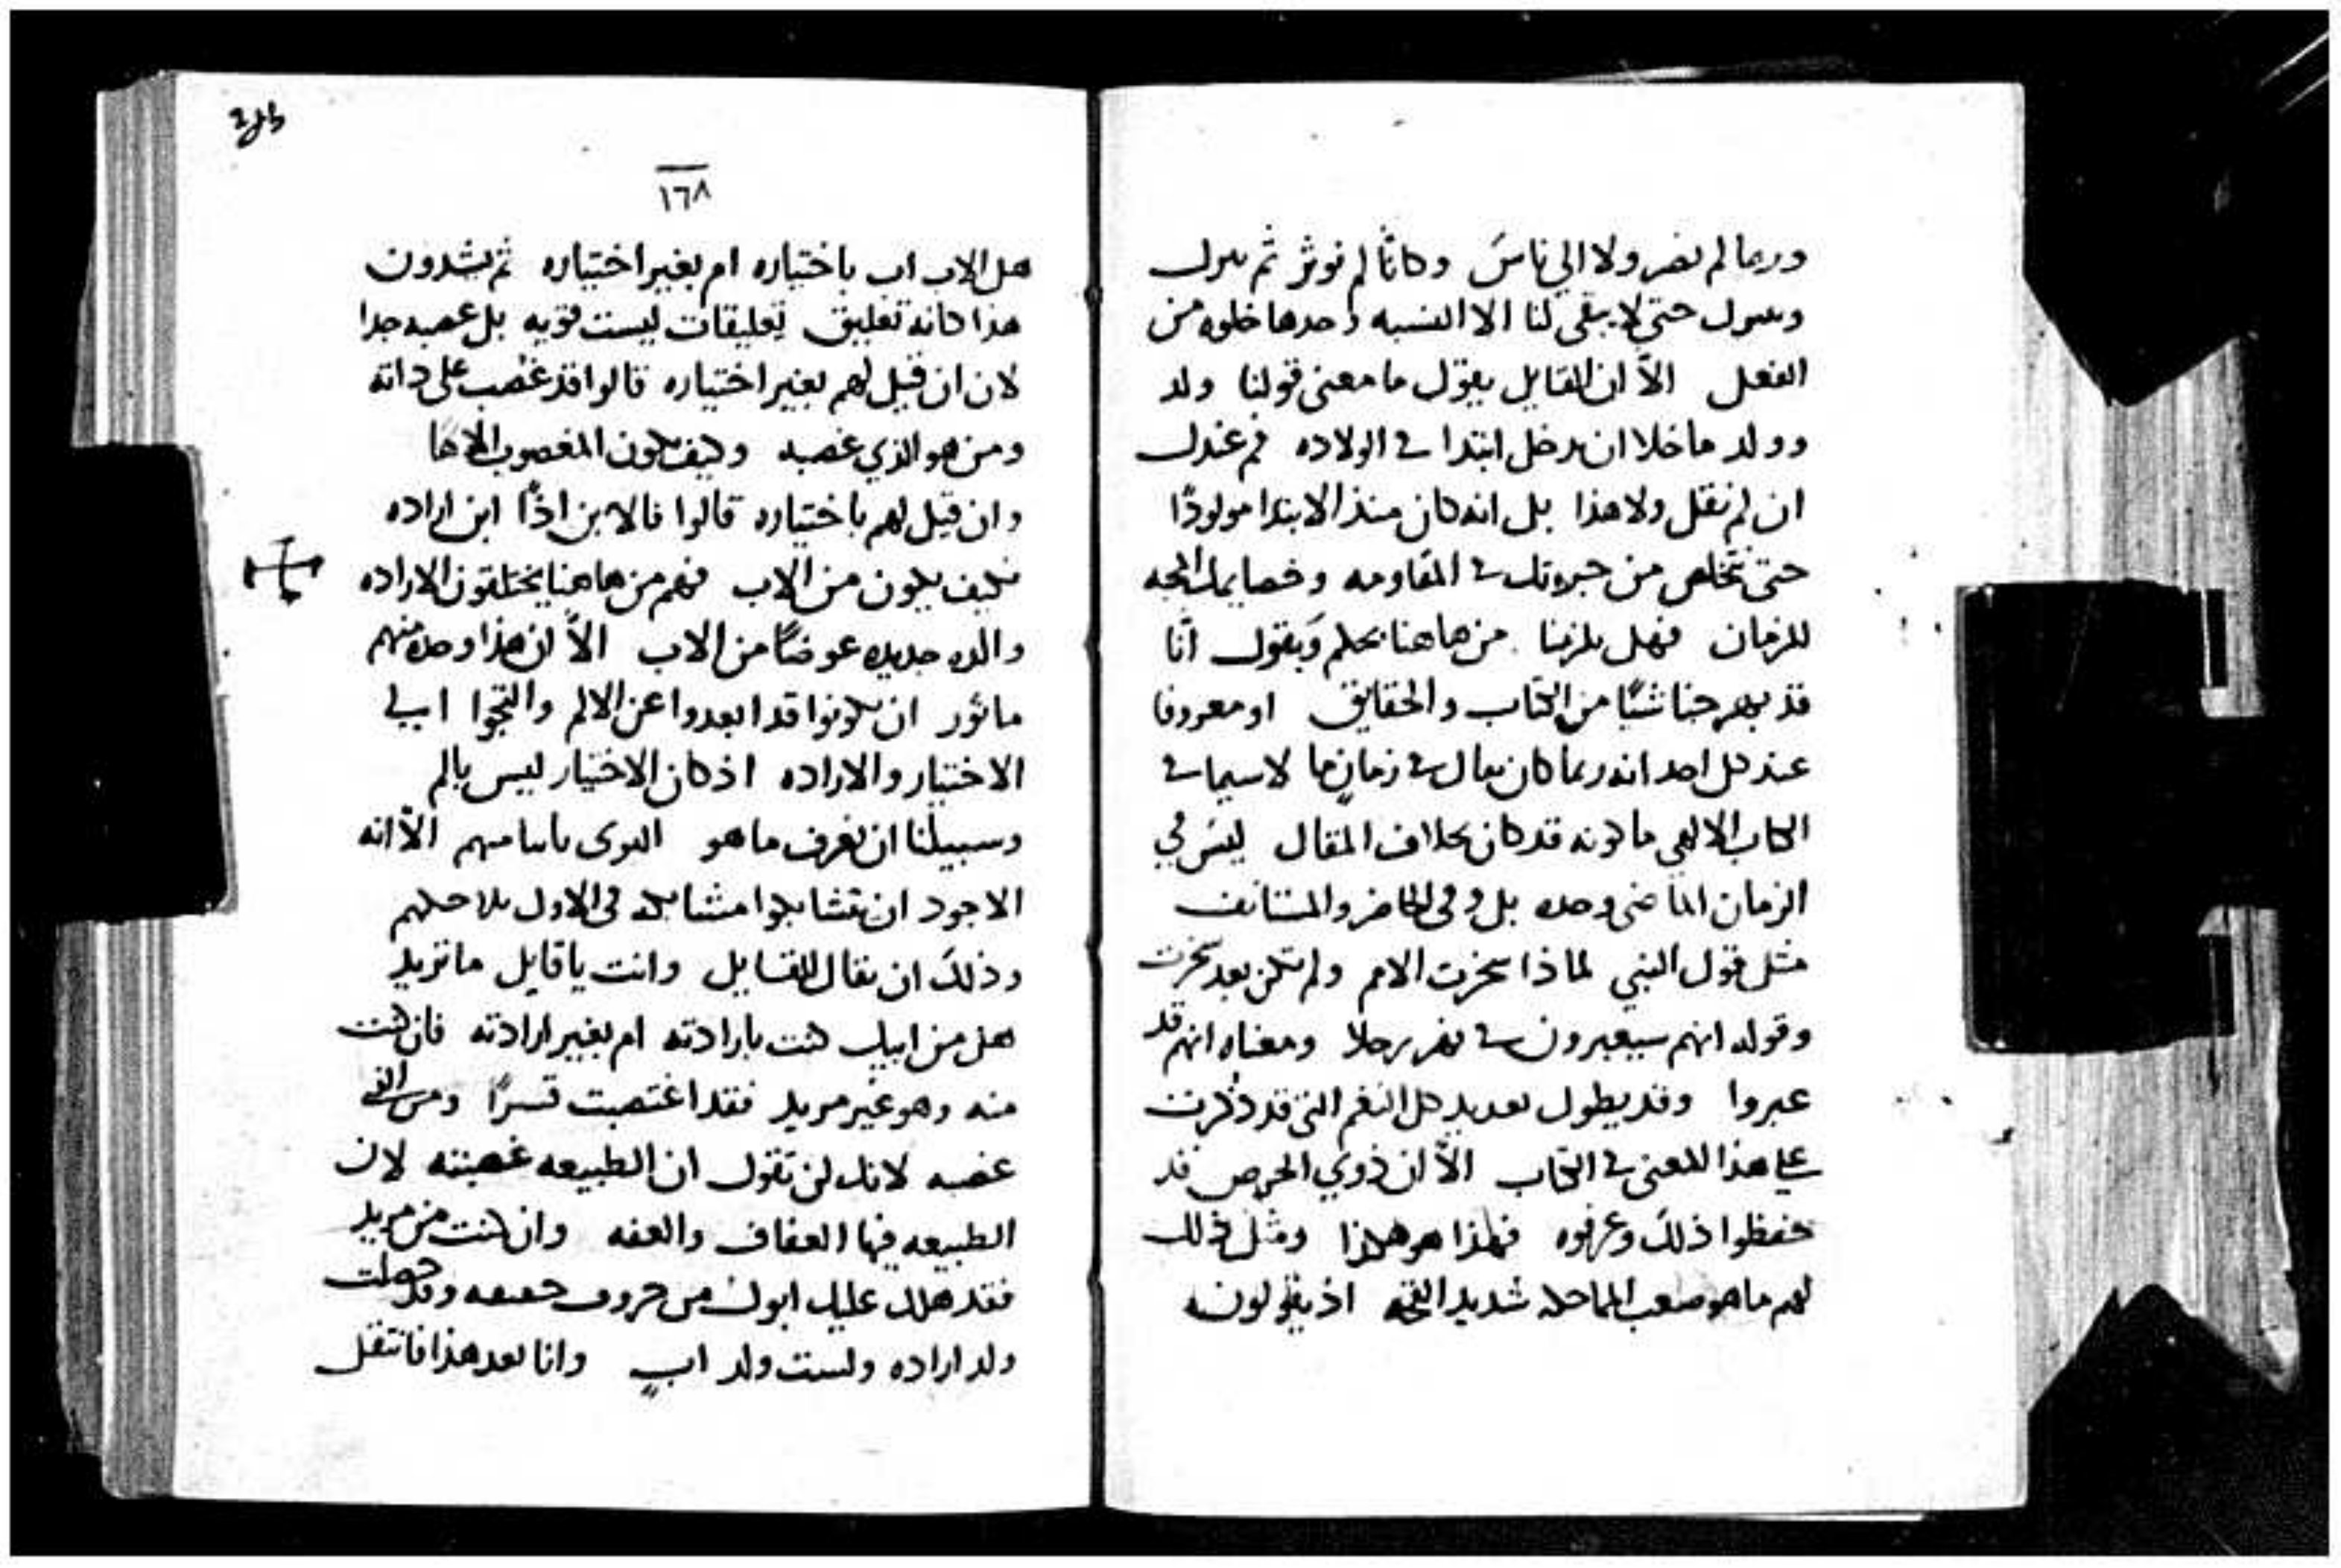 وربما لم نصر ولا الي ناسَ وكانّا لم نوثر ثم
حتي لا يبقي لنا الا النسبه وحدها خلوه من
الفعل الاّ ان القايل يقول ما معني قولنا ولد
وولد ما خلا ان يدخل ابتدا في الولاده فم عندك
ان لم نقل ولا هذا بل انه كان منذ الابتدا مولودًا
حتي نتخلص من في المقاومه المحبه
للزمان فهل يلزمنا من هاهنا ويقول انّا
قد شيًا من الكتاب والحقايق او معروفا
عند كل احد انه ربما كان يقال في زمانٍ ما لا سيما في
الكتاب الالهي ما كونه قد كان بخلاف المقال ليسَ في
الزمان الماضي وحده بل وفي الحاضر والمستانف
مثل قول النبي لماذا سخرت الامم ولم تكن بعد سخرت
وقوله انهم سيعبرون في نهر برجلا ومعناه انهم قد
عبروا وقد يطول تعديد كل النغم التي قد ذُكرت
علي هذا المعني في الكتاب الاّ ان ذوي الحرص قد
حفظوا ذلكَ وعرفوه فهذا هو هكذا ومثل ذلك
لهم ما هو صعب المماحكه شديد القحه اذ يقولون
١٦٨
هل الاب اب باختياره ام بغير اختياره ثم يشدون
هذا كانه تعليق تعليقات ليست قويه بل جدا
لان ان قيل لهم بغير اختياره قالوا قد غصب علي ذاته
ومن هو الذي غصبه وكيف يكون المغصوب الاهًا
وان قيل لهم باختياره قالوا فالابن اذًا ابن اراده
فكيف يكون من الاب فهم من هاهنا يختلقون الاراده
والده جديده عوضًا من الاب الاّ ان هذا وحده منهم
ماثور ان يكونوا قد ابعدوا عن الالم والتجوا الي
الاختيار والاراده اذ كان الاختيار ليس بالم
وسبيلنا ان نعرف ما هو القوي الاّ انه
الاجود ان في الاول
وذلكَ ان يقال للقايل وانت يا قايل ما تريد
هل من ابيك كنت بارادته ام بغير ارادته فان كنت
منه وهو غير مريد فقد اغتصبت قسرًا ومن الذي
غصبه لانك لن تقول ان الطبيعه غصبته لان
الطبيعه فيها العفاف والعفه وان كنت من مريد
فقد هلك عليك ابوك من حروف وقد حصلت
ولد اراده ولست ولد ابٍ وانا بعد هذا فانتقل